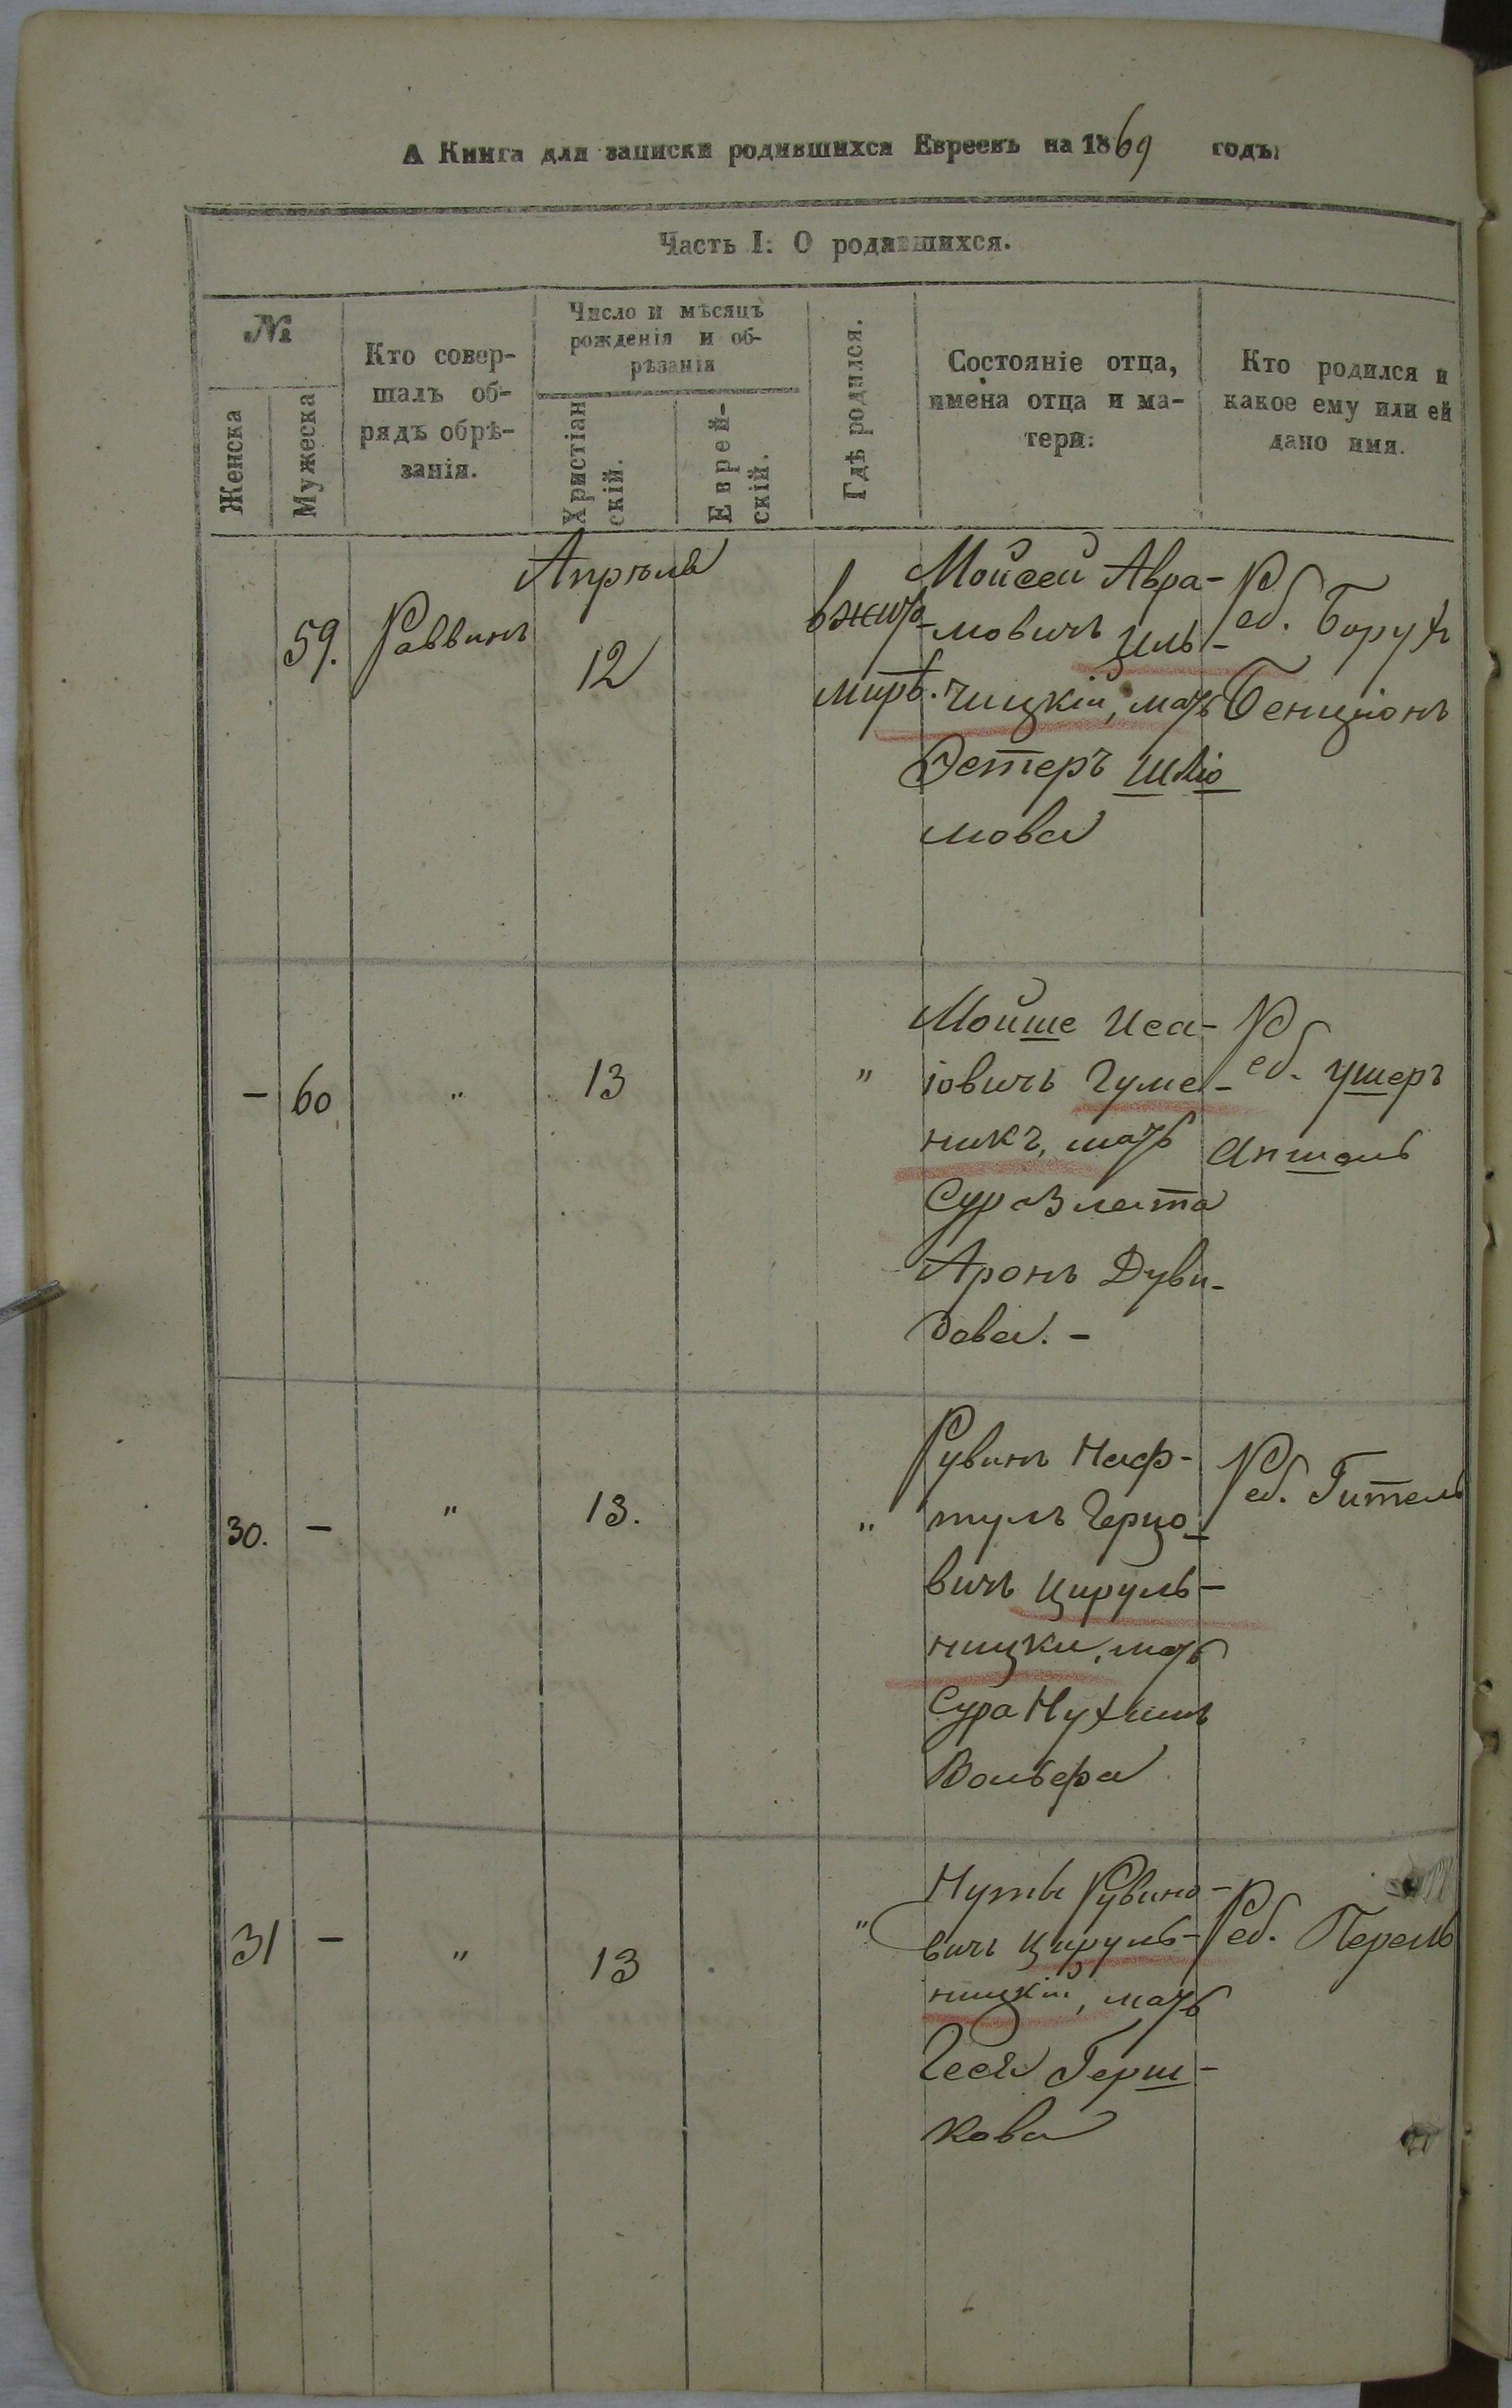 А Книга для записки родившихся Евреевъ на 1869 годъ.
Часть I: О родившихся.
№
Женска
Мужеска
Кто совер-
шалъ об-
рядъ обрѣ-
занія.
Число и мѣсяцъ
рожденія и об-
рѣзанія
Христіан
скій.
Еврей-
скій.
Гдѣ родился.
Состояніе отца,
имена отца и ма-
тери:
Кто родился и
какое ему или ей
дано имя.
Апрѣля
59. Раввинъ
12
в Жито-
мирѣ.
Мойсей Авра-
мовичъ Иль-
чицкій, мать
Эстеръ Шлio
мова
Реб. Борухъ
Бенціонъ
- 60 " 13 "
Мойше Иса-
іовичъ Гуме-
никъ, мать
Сура Злата
Аронъ Дуви-
дова. -
Реб. Ушеръ
Аншель
30. - " 13. "
Рувинъ Наф-
тулъ Герцо-
вичъ Цируль-
ницки, мать
Сура Нухимъ
Вольфа
Реб. Гитель
31 - " 13 "
Нуты Рувино-
вичъ Цируль-
ницкій, мать
Гася Герш-
кова
Реб. Перель